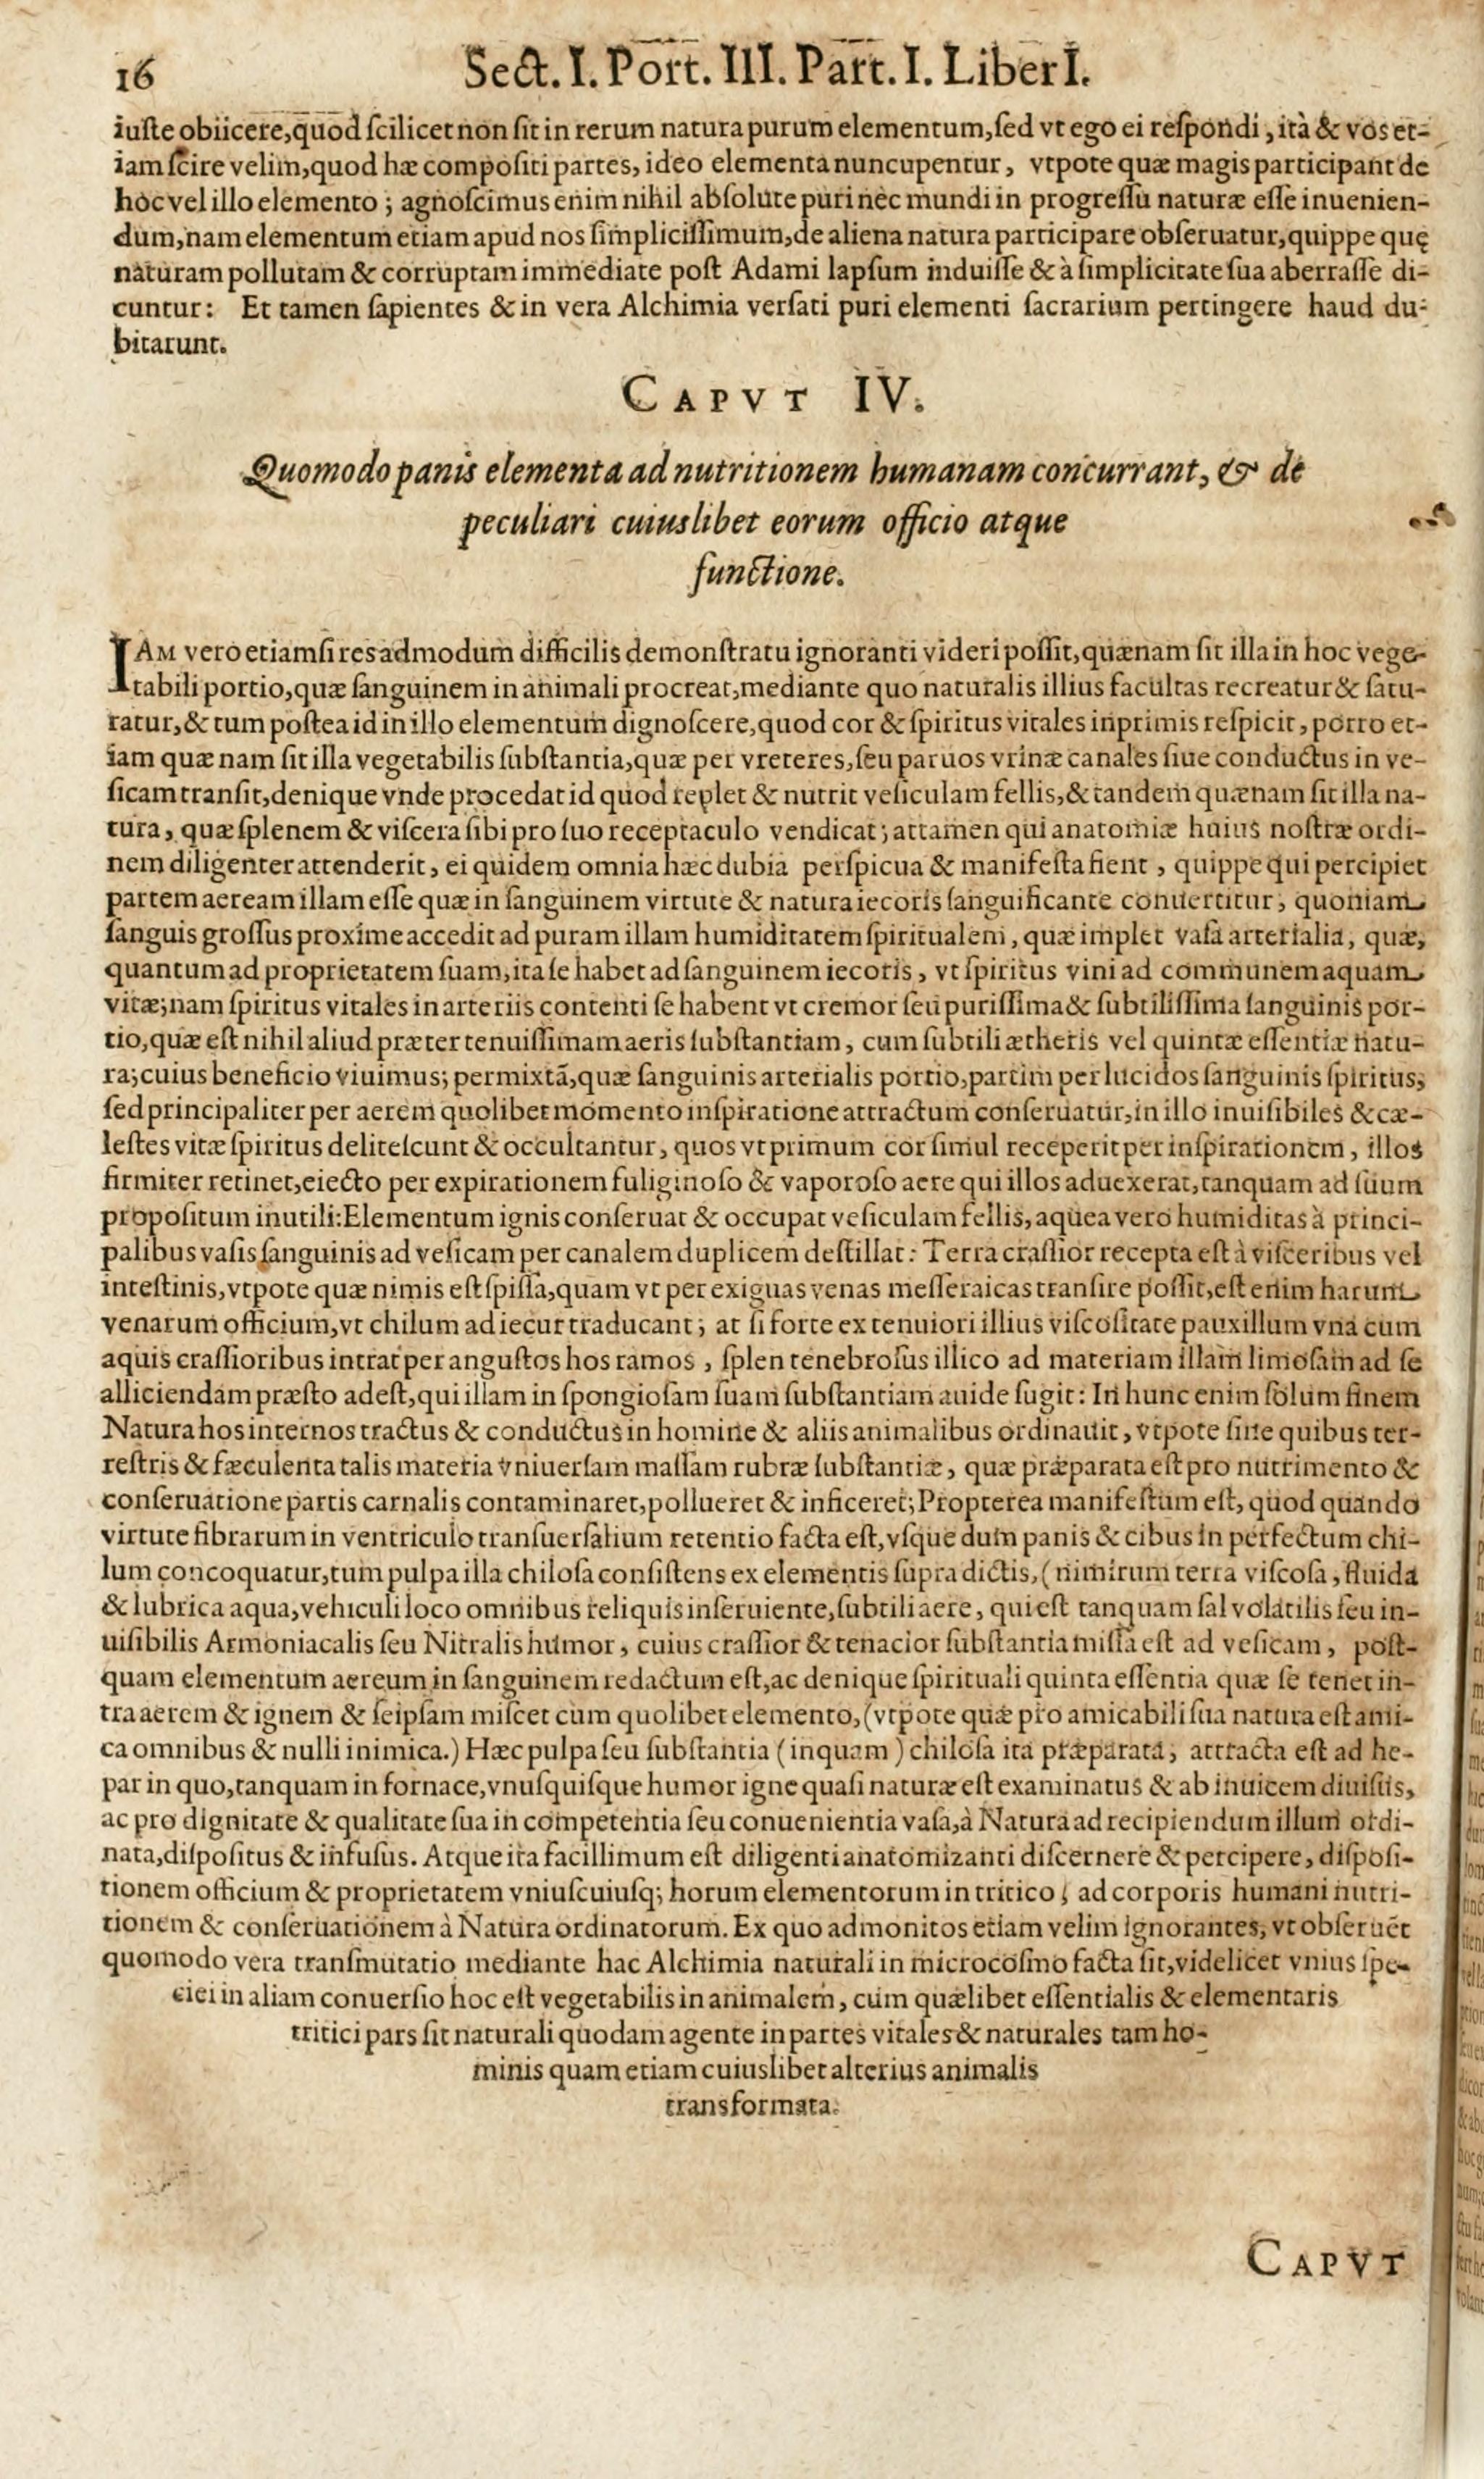 16 Sect. I. Port. III. Part. I. Liber I.
iuste obiicere, quod scilicet non sit in rerum natura purum elementum, sed vt ego ei respondi, ità & vos et-
iam scire velim, quod hæ compositi partes, ideo elementa nuncupentur, vtpote quæ magis participant de
hoc vel illo elemento; agnoscimus enim nihil absolute puri nec mundi in progressu naturæ esse inuenien-
dum, nam elementum etiam apud nos simplicissimum, de aliena natura participare obseruatur, quippe quę
naturam pollutam & corruptam immediate post Adami lapsum induisse & à simplicitate sua aberrasse di-
cuntur: Et tamen sapientes & in vera Alchimia versati puri elementi sacrarium pertingere haud du-
bitarunt.
CAPVT IV.
Quomodo panis elementa ad nutritionem humanam concurrant, & de
peculiari cuiuslibet eorum officio atque
functione.
IAM vero etiamsi res admodum difficilis demonstratu ignoranti videri possit, quænam sit illa in hoc vege-
tabili portio, quæ sanguinem in animali procreat, mediante quo naturalis illius facultas recreatur & satu-
ratur, & tum postea id in illo elementum dignoscere, quod cor & spiritus vitales inprimis respicit, porro et-
iam quæ nam sit illa vegetabilis substantia, quæ per vreteres, seu paruos vrinæ canales siue conductus in ve-
sicam transit, denique vnde procedat id quod replet & nutrit vesiculam fellis, & tandem quænam sit illa na-
tura, quæ splenem & viscera sibi pro suo receptaculo vendicat; attamen qui anatomiæ huius nostræ ordi-
nem diligenter attenderit, ei quidem omnia hæc dubia perspicua & manifesta fient, quippe qui percipiet
partem aeream illam esse quæ in sanguinem virtute & natura iecoris sanguificante conuertitur, quoniam
sanguis grossus proxime accedit ad puram illam humiditatem spiritualem, quæ implet vasa arterialia, quæ,
quantum ad proprietatem suam, ita se habet ad sanguinem iecoris, vt spiritus vini ad communem aquam
vitæ; nam spiritus vitales in arteriis contenti se habent vt cremor seu purissima & subtilissima sanguinis por-
tio, quæ est nihil aliud præter tenuissimam aeris substantiam, cum subtili ætheris vel quintæ essentiæ natu-
ra; cuius beneficio viuimus; permixtā, quæ sanguinis arterialis portio, partim per lucidos sanguinis spiritus,
sed principaliter per aerem quolibet momento inspiratione attractum conseruatur, in illo inuisibiles & cæ-
lestes vitæ spiritus delitescunt & occultantur, quos vt primum cor simul receperit per inspirationem, illos
firmiter retinet, eiecto per expirationem fuliginoso & vaporoso aere qui illos aduexerat, tanquam ad suum
propositum inutili: Elementum ignis conseruat & occupat vesiculam fellis, aquea vero humiditas à princi-
palibus vasis sanguinis ad vesicam per canalem duplicem destillat: Terra crassior recepta est à visceribus vel
intestinis, vtpote quæ nimis est spissa, quam vt per exiguas venas messeraicas transire possit, est enim harum
venarum officium, vt chilum ad iecur traducant; at si forte ex tenuiori illius viscositate pauxillum vna cum
aquis crassioribus intrat per angustos hos ramos, splen tenebrosus illico ad materiam illam limosam ad se
alliciendam præsto adest, qui illam in spongiosam suam substantiam auide sugit: In hunc enim solum finem
Natura hos internos tractus & conductus in homine & aliis animalibus ordinauit, vtpote sine quibus ter-
restris & fæculenta talis materia vniuersam massam rubræ substantiæ, quæ præparata est pro nutrimento &
conseruatione partis carnalis contaminaret, pollueret & inficeret; Propterea manifestum est, quod quando
virtute fibrarum in ventriculo transuersalium retentio facta est, vsque dum panis & cibus in perfectum chi-
lum concoquatur, tum pulpa illa chilosa consistens ex elementis supra dictis, (nimirum terra viscosa, fluida
& lubrica aqua, vehiculi loco omnibus reliquis inseruiente, subtili aere, qui est tanquam sal volatilis seu in-
uisibilis Armoniacalis seu Nitralis humor, cuius crassior & tenacior substantia missa est ad vesicam, post-
quam elementum aereum in sanguinem redactum est, ac denique spirituali quinta essentia quæ se tenet in-
tra aerem & ignem & seipsam miscet cum quolibet elemento, (vtpote quæ pro amicabili sua natura est ami-
ca omnibus & nulli inimica.) Hæc pulpa seu substantia (inquam) chilosa ita præparata, attracta est ad he-
par in quo, tanquam in fornace, vnusquisque humor igne quasi naturæ est examinatus & ab inuicem diuisus,
ac pro dignitate & qualitate sua in competentia seu conuenientia vasa, à Natura ad recipiendum illum ordi-
nata, dispositus & infusus. Atque ita facillimum est diligenti anatomizanti discernere & percipere, disposi-
tionem officium & proprietatem vniuscuiusq; horum elementorum in tritico, ad corporis humani nutri-
tionem & conseruationem à Natura ordinatorum. Ex quo admonitos etiam velim ignorantes, vt obseruēt
quomodo vera transmutatio mediante hac Alchimia naturali in microcosmo facta sit, videlicet vnius spe-
ciei in aliam conuersio hoc est vegetabilis in animalem, cum quælibet essentialis & elementaris
tritici pars sit naturali quodam agente in partes vitales & naturales tam ho-
minis quam etiam cuiuslibet alterius animalis
transformata.
CAPVT